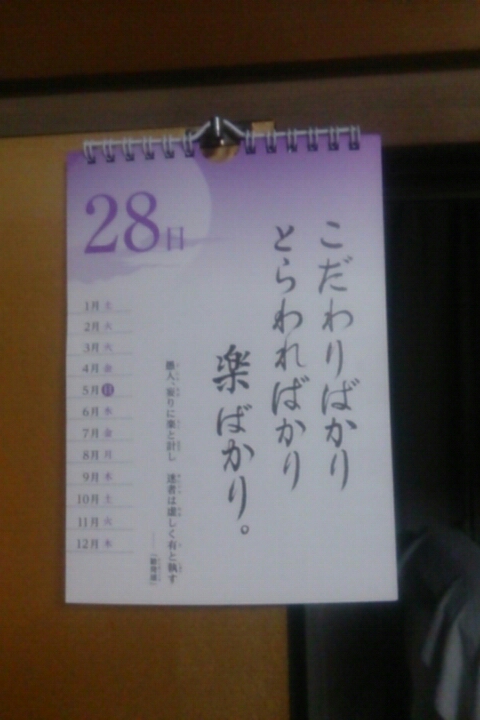 28日
こだわりばかり
とらわればかり
楽ばかり。
愚人、妄りに楽と計し 迷者は虚しく有と執す
1月 土
2月 火
3月 火
4月 金
5月 日
6月 水
7月 金
8月 月
9月 水
10月 土
11月 火
12月 木